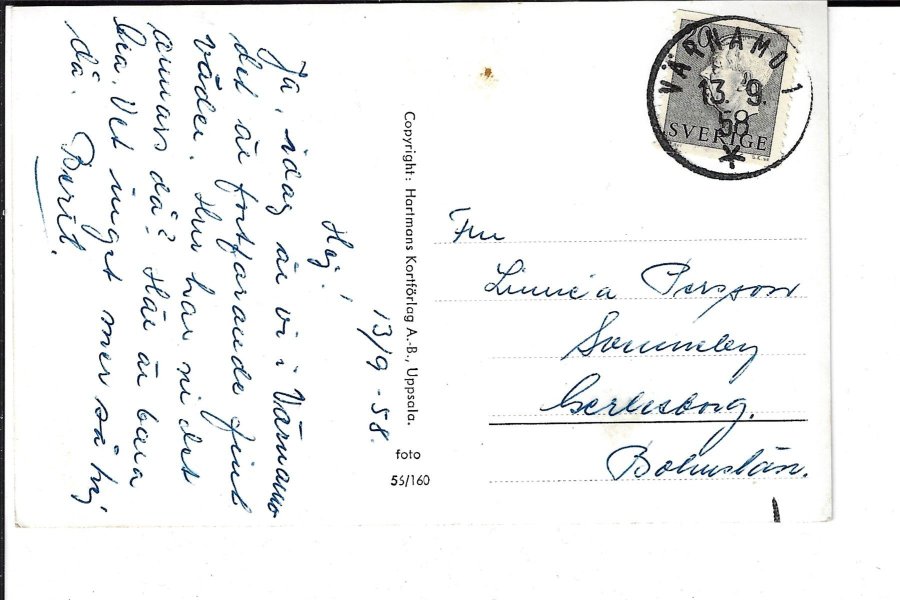 13/9 - 58.
Hej!
Ja, idag är vi i Värnamo
det är fortfarande fint
väder. Hur har ni det
annars då? Här är bara
bra. Vet inget mer så hej
då. Berit.
Copyright: Hartmans Kortförlag A.-B., Uppsala.
foto
56/160
VÄRNAMO 1
13. 9.
58
SVERIGE
Fru
Linnéa Persson
Sommeby
Gerlesborg.
Bohuslän.